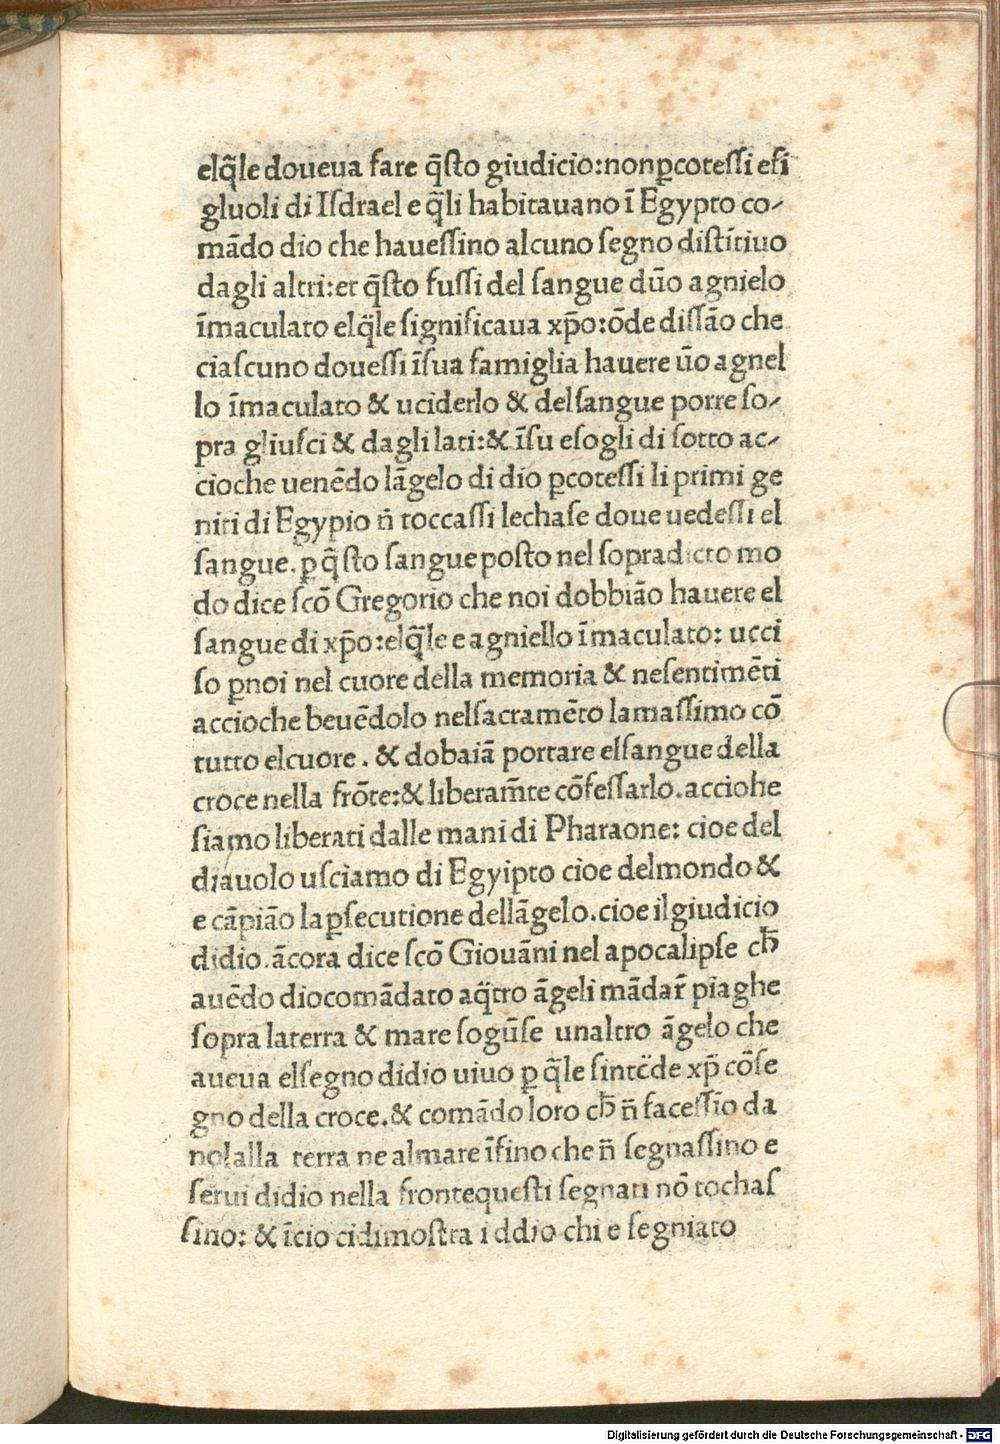 elq̃le doueua fare q̃sto giudicio:non ꝑcoteſſi eſi
gluoli di Iſdrael e q̃li habitauano ĩ Egypto co-
mãdo dio che haueſſino alcuno ſegno diſtĩtiuo
dagli altri:et q̃ſto fuſſi del ſangue dũo agnielo
ĩmaculato elq̃le ſignificaua xp̃o:õde diſſão che
ciaſcuno doueſſi ĩſua famiglia hauere ũo agnel
lo ĩmaculato & uciderlo & delſangue porre ſo-
pra gliuſci & dagli lati:& ĩſu eſogli di ſotto ac-
cioche uenẽdo lãgelo di dio ꝑcoteſſi li primi ge
niti di Egypio ñ toccaſſi lechaſe doue uedeſſi el
ſangue.ꝑ q̃ſto ſangue poſto nel ſopradicto mo
do dice ſcõ Gregorio che noi dobbião hauere el
ſangue di xp̃o:elq̃le e agniello ĩmaculato: ucci
ſo ꝑnoi nel cuore della memoria & neſentimẽti
accioche beuẽdolo nelſacramẽto lamaſſimo cõ
tutto elcuore. & dobaiã portare elſangue della
croce nella frõte:& liberam̃te cõfeſſarlo.acciohe
ſiamo liberati dalle mani di Pharaone: cioe del
diauolo uſciamo di Egyipto cioe delmondo &
e cãpião laꝑſecutione dellãgelo.cioe ilgiudicio
didio.ãcora dice ſcõ Giouãni nel apocalipſe cħ
auẽdo diocomãdato aq̃tro ãgeli mãdar̃ piaghe
ſopra laterra & mare ſogũſe unaltro ãgelo che
aueua elſegno didio uiuo ꝑ q̃le ſintẽde xp̃ cõſe
gno della croce.& comãdo loro cħ ñ faceſſĩo da
nolalla terra ne almare ĩfino che ñ ſegnaſſino e
ſerui didio nella frontequeſti ſegnati nõ tochaſ
ſino: & ĩcio cidimoſtra iddio chi e ſegniato
Digitalisierung gefördert durch die Deutsche Forschungsgemeinschaft - DFG